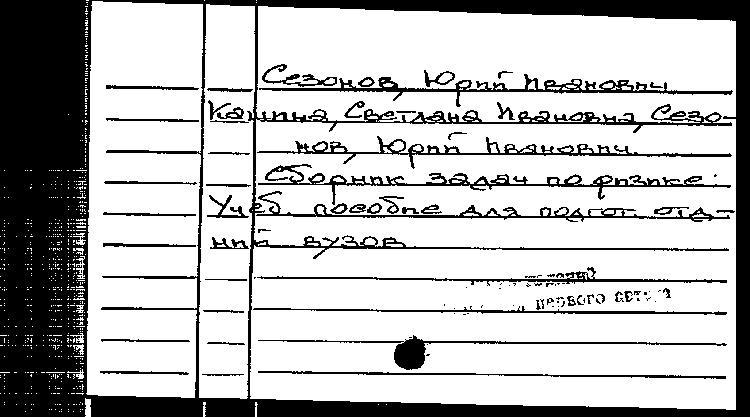 Сезонов, Юрий Иванович
Кашина, Светлана Ивановна, Сезо-
нов, Юрий Иванович.
Сборник задач по физике:
Учеб. пособие для подгот. отде-
ний вузов
первого автора